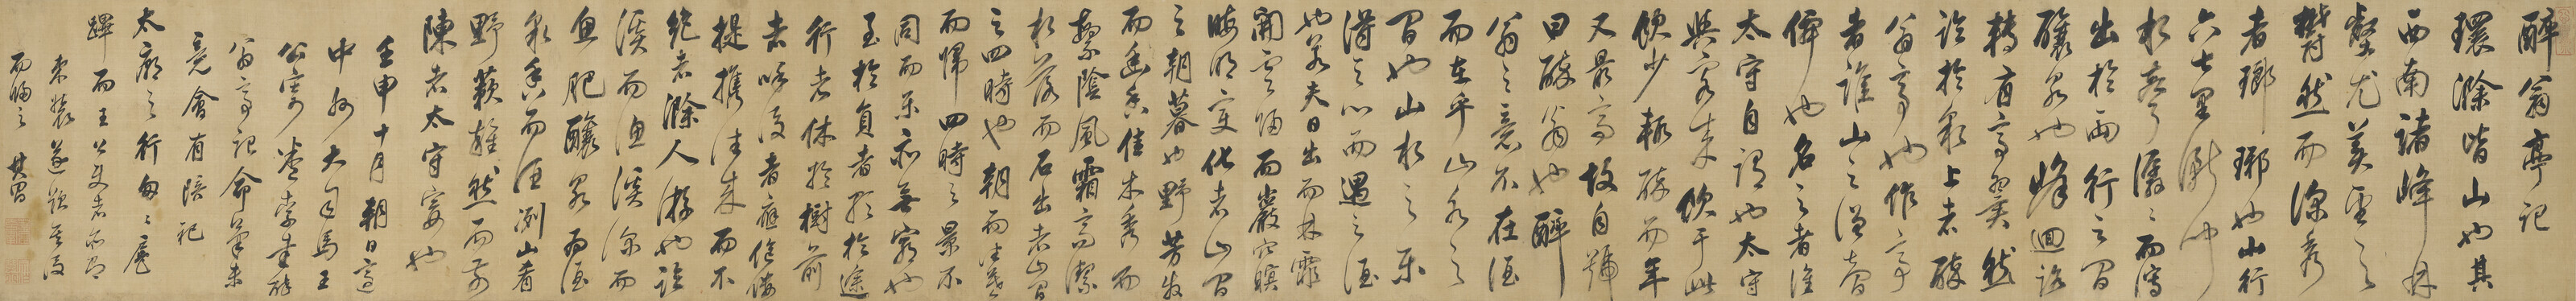 醉翁亭記
環滁皆山也其
西南諸峰林
壑尤美望之
蔚然而深秀
者瑯琊也山行
六七里漸聞
水聲潺潺而瀉
出於兩行之間
釀泉也峰迴路
轉有亭翼然
臨於泉上者醉
翁亭也作亭
者誰山之僧智
僊也名之者誰
太守自謂也太守
與客來飲于此
飲少輒醉而年
又最高故自號
曰醉翁也醉
翁之意不在酒
而在乎山水之
間也山水之樂
得之心而遇之酒
也若夫日出而林霏
開雲歸而巖穴暝
晦明變化者山間
之朝暮也野芳發
而幽香佳木秀而
繁陰風霜高潔
水落而石出者山間
之四時也朝而往暮
而歸四時之景不
同而樂亦無窮也
至於負者歌於途
行者休於樹前
者呼後者應傴僂
提攜往來而不
絕者滁人游也臨
溪而漁溪深而
魚肥釀泉為酒
泉香而酒洌山肴
野蔌雜然而前
陳者太守宴也
壬申十月朔日
中州大司馬王
公寄
翁亭記命筆未
竟會有陪祀
太廟之行匆匆扈
蹕而王公使者亦即
束裝遂題其後
而歸之 其昌